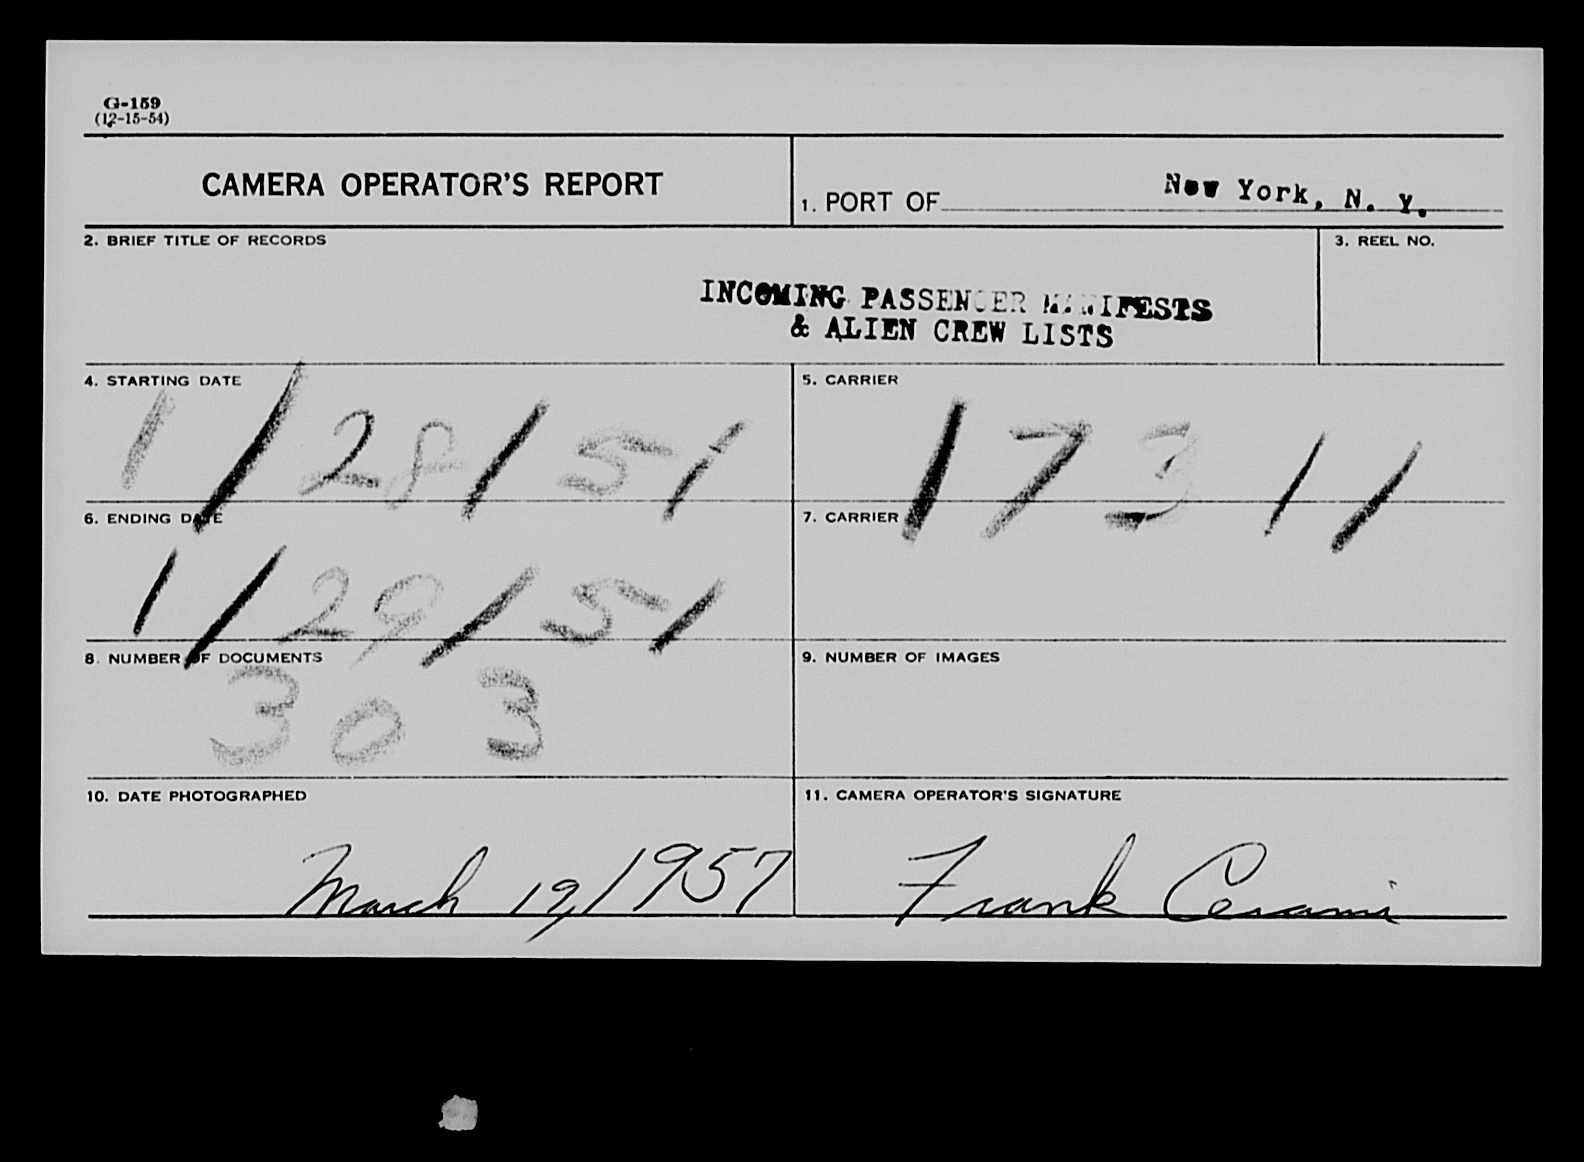 G-159
(12-15-54)
CAMERA OPERATOR'S REPORT
1. PORT OF New York, N. Y.
2. BRIEF TITLE OF RECORDS
3. REEL NO.
INCOMING PASSENGER MANIFESTS
& ALIEN CREW LISTS
4. STARTING DATE
1/28/51
5. CARRIER
17311
6. ENDING DATE
1/29/51
7. CARRIER
8. NUMBER OF DOCUMENTS
303
9. NUMBER OF IMAGES
10. DATE PHOTOGRAPHED
March 19, 1957
11. CAMERA OPERATOR'S SIGNATURE
Frank Cerami